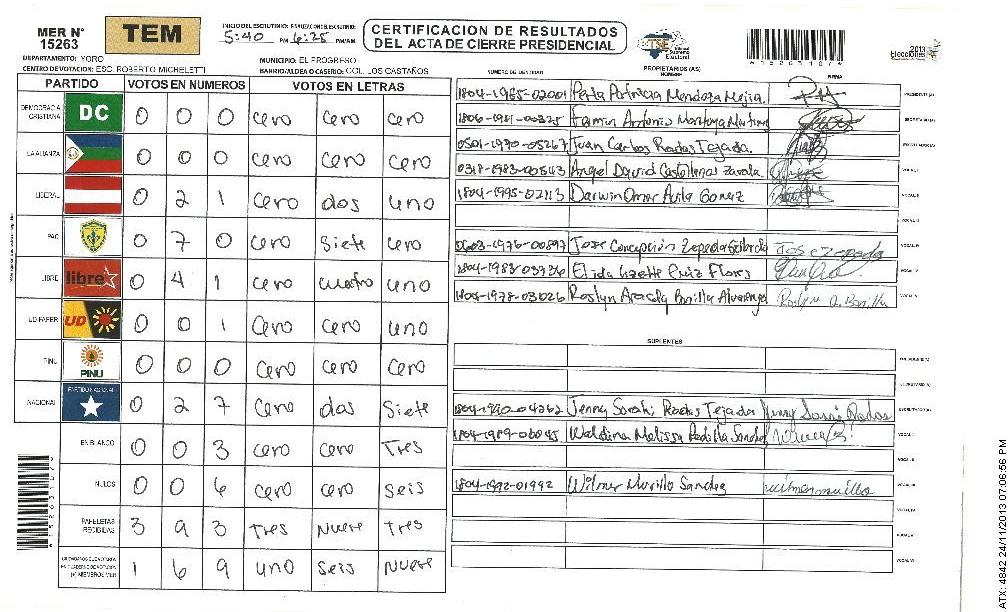 MER N° 15263
TEM
INICIO DEL ESCRUTINIO: FINALIZACION DEL ESCRUTINIO:
5:40 PM 6:25 PM/AM
CERTIFICACION DE RESULTADOS
DEL ACTA DE CIERRE PRESIDENCIAL
Tribunal Supremo Electoral
2013
Elecciones
DEPARTAMENTO: YORO
MUNICIPIO: EL PROGRESO
CENTRO DE VOTACION: ESC. ROBERTO MICHELETTI
BARRIO/ALDEA O CASERIO: COL. LOS CASTAÑOS
NUMERO DE IDENTIDAD
PROPIETARIOS (AS)
NOMBRE
FIRMA
PARTIDO VOTOS EN NUMEROS VOTOS EN LETRAS
DEMOCRACIA CRISTIANA DC 0 0 0 cero cero cero
LA ALIANZA 0 0 0 cero cero cero
LIBERAL 0 2 1 cero dos uno
PAC 0 7 0 cero siete cero
LIBRE libre 0 4 1 cero cuatro uno
UD FAPER UD 0 0 1 cero cero uno
PINU PINU 0 0 0 cero cero cero
NACIONAL PARTIDO NACIONAL 0 2 7 cero dos siete
EN BLANCO 0 0 3 cero cero Tres
NULOS 0 0 6 cero cero seis
PAPELETAS RECIBIDAS 3 9 3 Tres Nueve Tres
1 6 9 uno seis Nueve
1804-1985-02001 Perla Patricia Mendoza Mejia. PRESIDENTE (A)
1806-1981-00325 Fermin Antonio Montoya Martinez SECRETARIO (A)
0501-1990-05267 Juan Carlos Rodas Tejada. ESCRUTADOR (A)
0318-1983-00543 Angel David Castellanos Zavala. VOCAL I
1804-1995-02113 Darwin Omar Avila Gomez VOCAL II
VOCAL III
0603-1976-00897 Jose Concepción Zepeda Jose Zepeda VOCAL IV
1804-1983-03736 Elida Lizette Cruz Flores VOCAL V
1804-1978-03026 Roslyn Aracely Bonilla Alvarenga Roslyn A. Bonilla
SUPLENTES
PRESIDENTE (A)
SECRETARIO (A)
1804-1990-04362 Jenny Sarahi Rodas Tejada Jenny Sarai Rodas ESCRUTADOR (A)
1804-1989-00045 Waldina Melissa Padilla Sanchez VOCAL I
VOCAL II
1804-1992-01992 Wilmer Murillo Sanchez wilmer murillo VOCAL III
VOCAL IV
VOCAL V
VOCAL VI
ATX: 4842 24/11/2013 07:06:56 PM